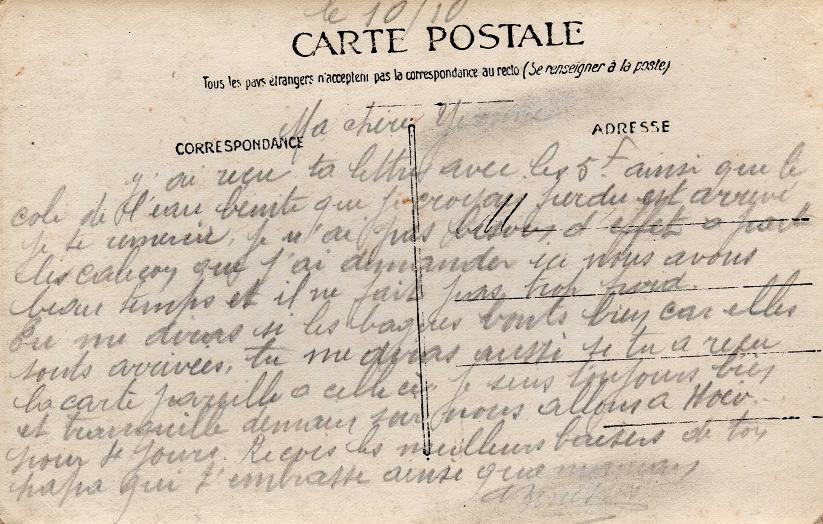 le 10/10
CARTE POSTALE
Tous les pays étrangers n'acceptent pas la correspondance au recto (Se renseigner à la poste)
Ma chère Yvonne
CORRESPONDANCE
ADRESSE
j'ai reçu ta lettre avec les 5 F ainsi que le
coli de l'eau benite que je croyais perdu est arrivé
je te remercie, je n'ai pas besoin d'effet a part
les caleçon que j'ai demander ici nous avons
beau temps et il ne fait pas trop froid.
Tu me diras si les bagues vonts bien car elles
sonts arrivées, tu me diras aussi si tu a reçu
la carte pareille a celle ci je suis toujours bien
et tranquille demain soir nous allons a
pour 4 jours. Recois les meilleurs baisers de ton
papa qui t'embrasse ainsi que maman